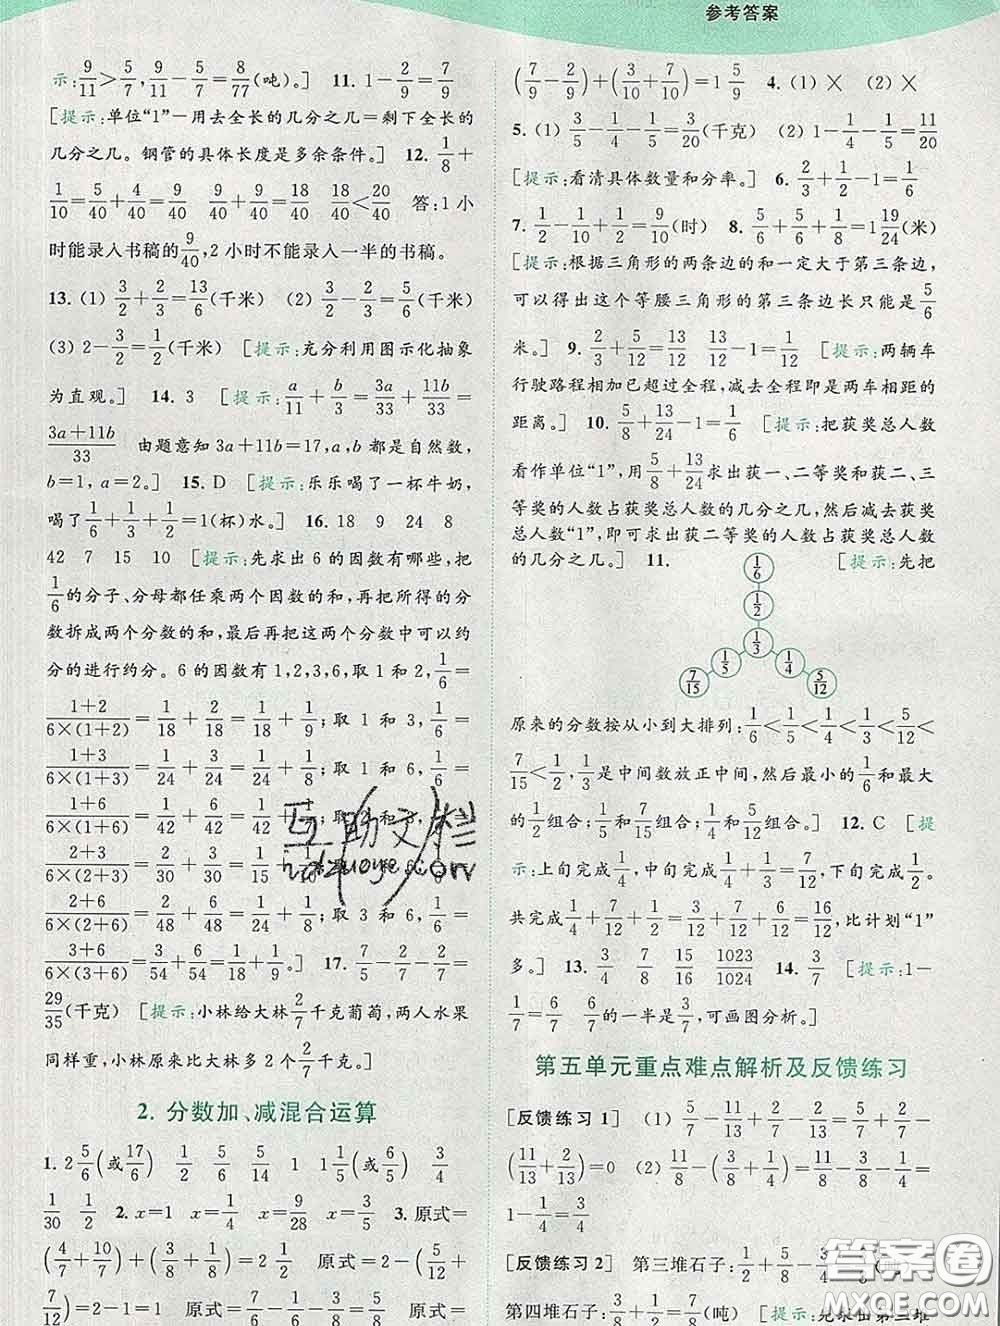 参考答案
示:9/11>5/7,9/11-5/7=8/77(吨)。] 11. 1-2/9=7/9
[提示:单位“1”-用去全长的几分之几=剩下全长的
几分之几。钢管的具体长度是多余条件。] 12. 1/8+
1/10=5/40+4/40=9/40 9/40+9/40=18/40 18/40<20/40 答:1小
时能录入书稿的9/40,2小时不能录入一半的书稿。
13. (1) 3/2+2/3=13/6(千米) (2) 3/2-2/3=5/6(千米)
(3) 2-3/2=1/2(千米) [提示:充分利用图示化抽象
为直观。] 14. 3 [提示:a/11+b/3=3a/33+11b/33=
3a+11b/33 由题意知3a+11b=17,a,b都是自然数,
b=1,a=2。] 15. D [提示:乐乐喝了一杯牛奶,
喝了1/6+1/3+1/2=1(杯)水。] 16. 18 9 24 8
42 7 15 10 [提示:先求出6的因数有哪些,把
1/6的分子、分母都任乘两个因数的和,再把所得的分
数拆成两个分数的和,最后再把这两个分数中可以约
分的进行约分。6的因数有1,2,3,6,取1和2,1/6=
1+2/6×(1+2)=1/18+2/18=1/18+1/9;取1和3,1/6=
1+3/6×(1+3)=1/24+3/24=1/24+1/8;取1和6,1/6=
1+6/6×(1+6)=
2+3/6×(2+3)=
2+6/6×(2+6)=2/48+6/48=1/24+1/8;取3和6,1/6=
3+6/6×(3+6)=3/54+6/54=1/18+1/9。] 17. 7/5-2/7-2/7=
29/35(千克) [提示:小林给大林2/7千克葡萄,两人水果
同样重,小林原来比大林多2个2/7千克。]
2. 分数加、减混合运算
1. 2 5/6(或17/6) 1/2 5/6 5/14 1 1 1/5(或6/5) 3/4
1/30 1/2 2. x=1 x=1/4 x=9/28 x=3/5 3. 原式=
(4/7+10/7)+(3/8+1/8)=2 1/2 原式=2-(5/7+
2/7)=2-1=1 原式=5/6-1/6
(7/9-2/9)+(3/10+7/10)=1 5/9 4. (1) × (2) ×
5. (1) 3/5-1/4-1/5=3/20(千克) (2) 1-1/4-1/5=11/20
[提示:看清具体数量和分率。] 6. 2/3+1/2-1=1/6
7. 1/2-1/10+1/2=9/10(时) 8. 5/6+5/6+1/8=1 19/24(米)
[提示:根据三角形的两条边的和一定大于第三条边,
可以得出这个等腰三角形的第三条边长只能是5/6
米。] 9. 1/2+7/12=13/12 13/12-1=1/12 [提示:两辆车
行驶路程相加已超过全程,减去全程即是两车相距的
距离。] 10. 5/8+13/24-1=1/6 [提示:把获奖总人数
看作单位“1”,用5/8+13/24求出获一、二等奖和获二、三
等奖的人数占获奖总人数的几分之几,然后减去获奖
总人数“1”,即可求出获二等奖的人数占获奖总人数
的几分之几。] 11. [提示:先把
1/6
1/2
1/3
1/5 1/4
7/15 5/12
原来的分数按从小到大排列:1/6<1/5<1/4<1/3<5/12<
7/15<1/2,1/3是中间数放正中间,然后最小的1/6和最大
的1/2组合;1/5和7/15组合;1/4和5/12组合。] 12. C [提
示:上旬完成1/4,中旬完成7/12,下旬完成1/2。
共完成1/4+7/12+1/2=3/12+7/12+6/12=16/12,比计划“1”
多。] 13. 3/4 7/8 15/16 1023/1024 14. 3/7 [提示:1-
1/7=6/7 6/7的一半是3/7,可画图分析。]
第五单元重点难点解析及反馈练习
[反馈练习1] (1) 5/7-11/13+2/7-2/13=5/7+2/7-
(11/13+2/13)=0 (2) 11/8-(3/8+1/4)=11/8-3/8-1/4=
1-1/4=3/4
[反馈练习2] 第三堆石子:
第四堆石子:
互助文栏
答案圈
MXQE.COM